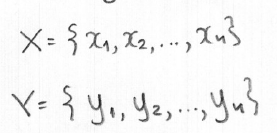 X = {x₁, x₂, ..., xₙ}
Y = {y₁, y₂, ..., yₙ}